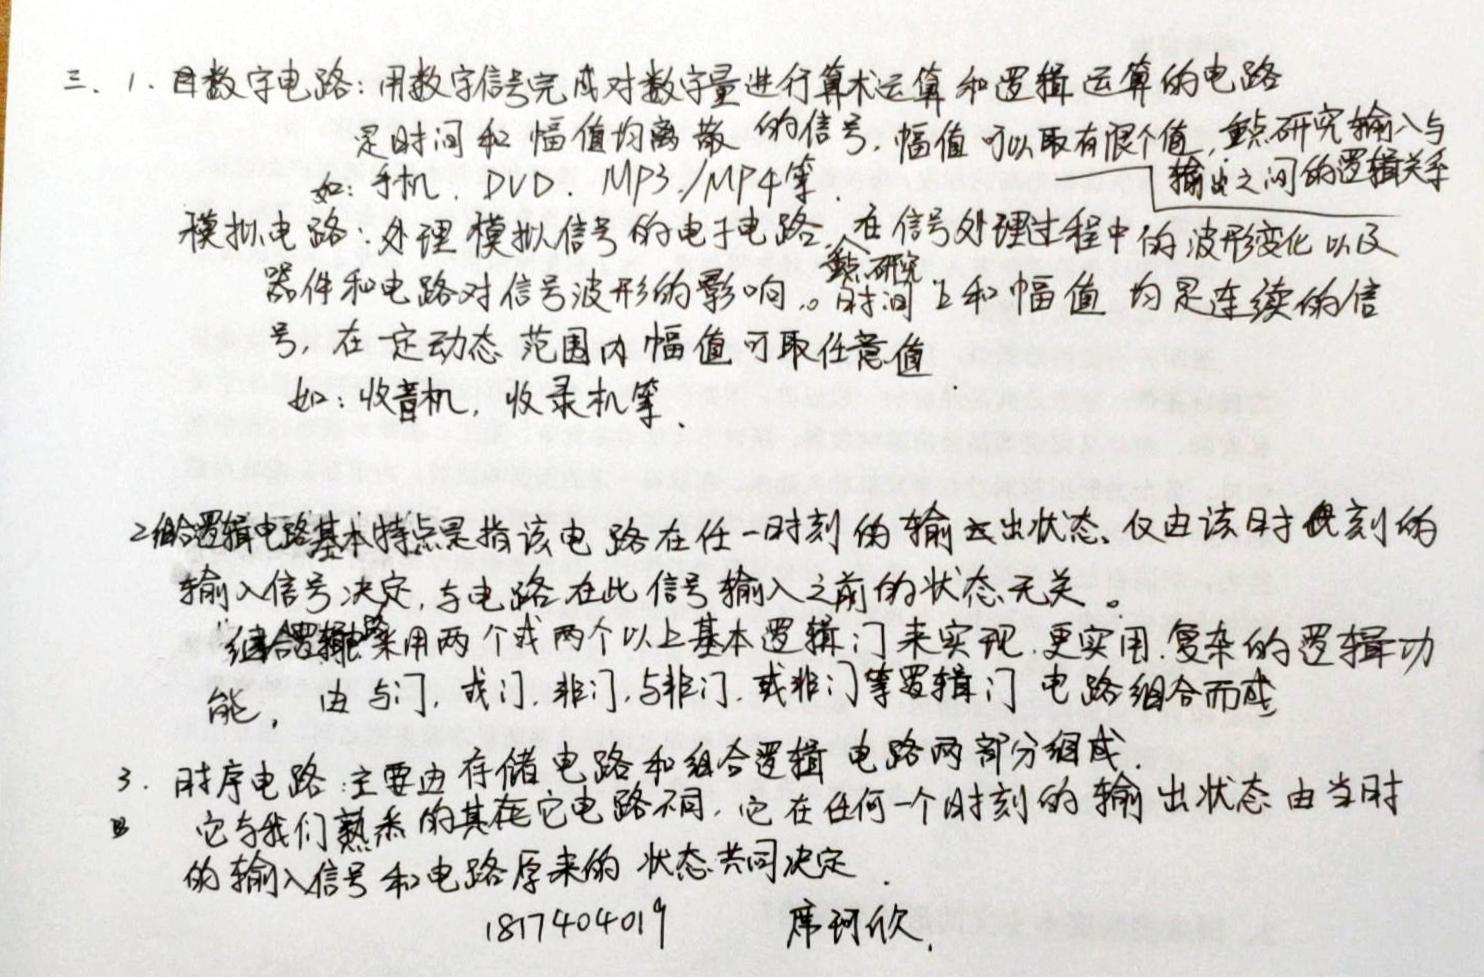 三、1. 数字电路：用数字信号完成对数字量进行算术运算和逻辑运算的电路
是时间和幅值均离散的信号，幅值可以取有限个值，重点研究输入与
输出之间的逻辑关系
如：手机、DVD、MP3/MP4等.
模拟电路：处理模拟信号的电子电路，在信号处理过程中的波形变化以及
重点研究
器件和电路对信号波形的影响。时间上和幅值均是连续的信
号，在一定动态范围内幅值可取任意值.
如：收音机，收录机等.
2.组合逻辑电路基本特点是指该电路在任一时刻的输出状态、仅由该时刻的
输入信号决定，与电路在此信号输入之前的状态无关。
组合逻辑电路采用两个或两个以上基本逻辑门来实现.更实用.复杂的逻辑功
能，由与门，或门.非门，与非门.或非门等逻辑门电路组合而成
3. 时序电路：主要由存储电路和组合逻辑电路两部分组成.
它与我们熟悉的其它电路不同，它在任何一个时刻的输出状态由当时
的输入信号和电路原来的状态共同决定.
1817404019 席珂欣.